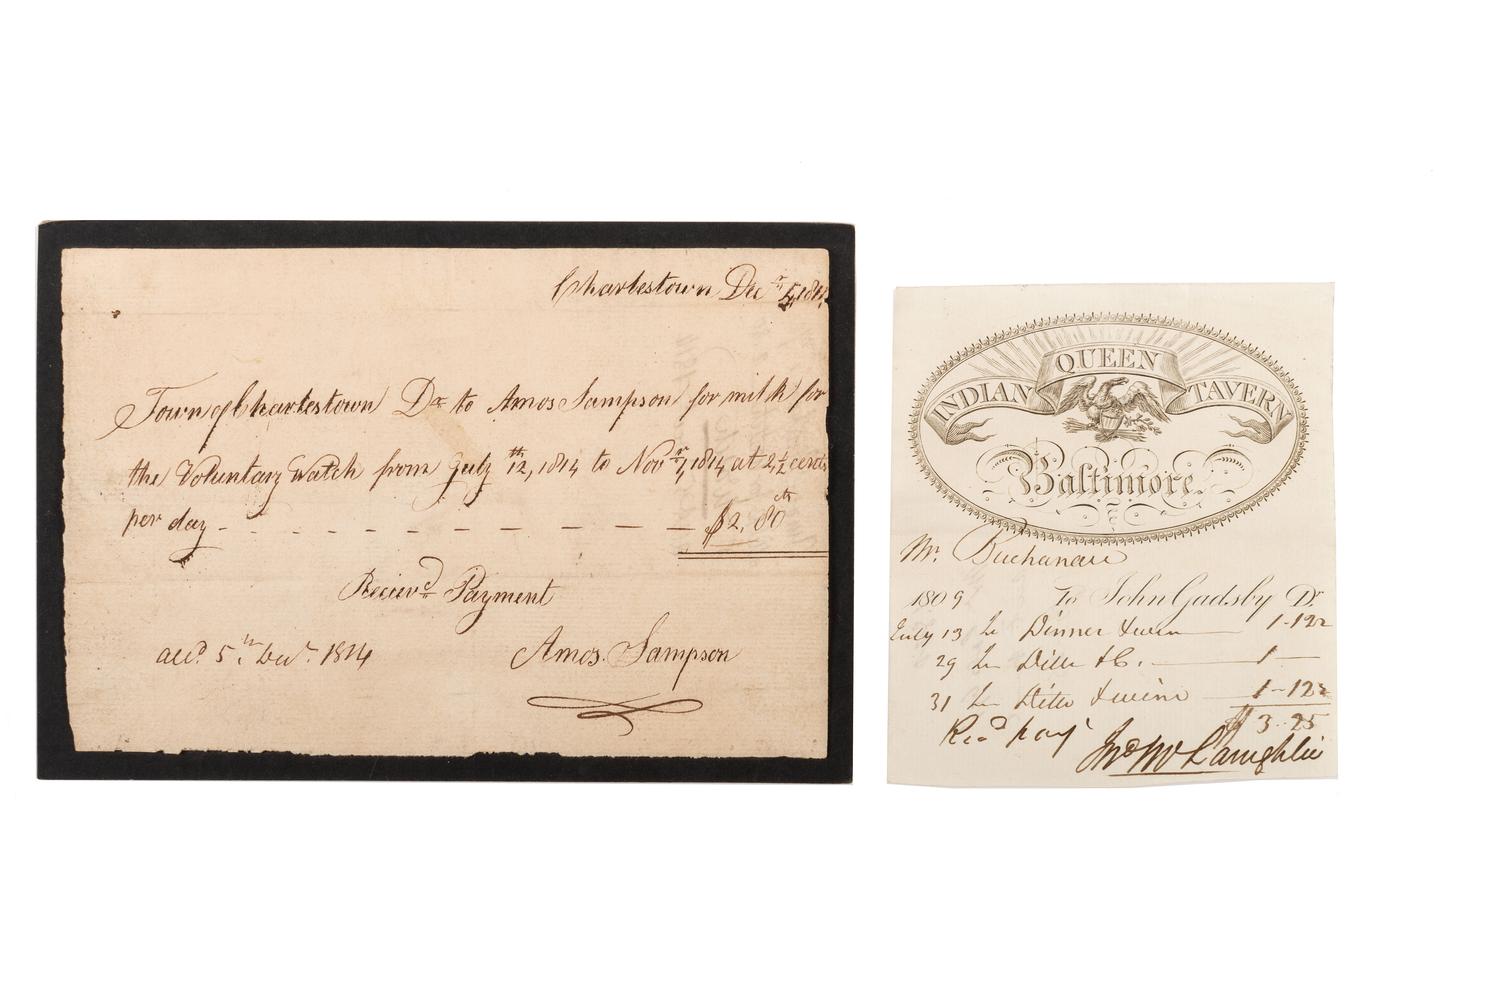 Charlestown Decr 5, 1814
Town of Charlestown Dr to Amos Sampson for milk for
the Voluntary Watch from July 12th, 1814 to Novr 7, 1814 at 2½ cents
per day - - - - - - - - - - $2,80cts
Recievd Payment
5th Decr 1814
Amos Sampson
INDIAN QUEEN TAVERN
Baltimore.
Mr. Buchanan
1809 To John Gadsby Dr
July 13 To Dinner & wine 1-12½
29 To Ditto &c. 1 -
31 To Ditto & wine 1-12½
$3.25
Recd payt
Jno McLaughlin